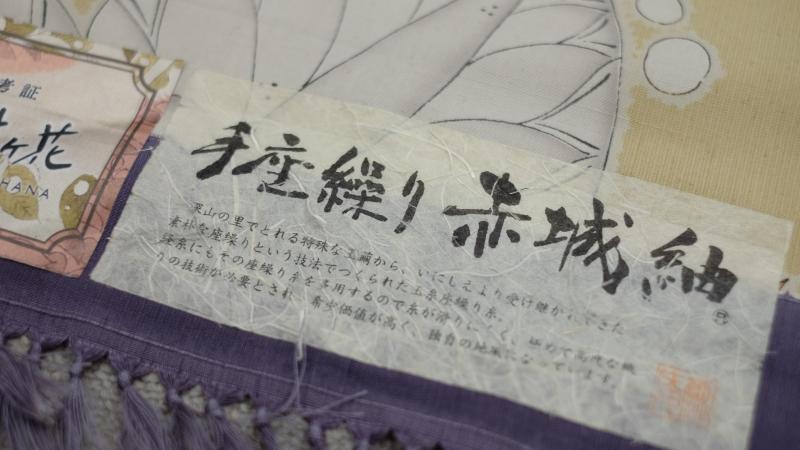 考証
ヶ花
HANA
手座繰り赤城紬
の里でとれる特殊な玉繭から、いにしえより受け継がれてきた
素朴な座繰りという技法でつくられた玉糸座繰り糸。
緯糸にもその座繰り糸を多用するので糸が滑りにくく、極めて高度な織
りの技術が必要とされ 希少価値が高く、独自の地風になっています。